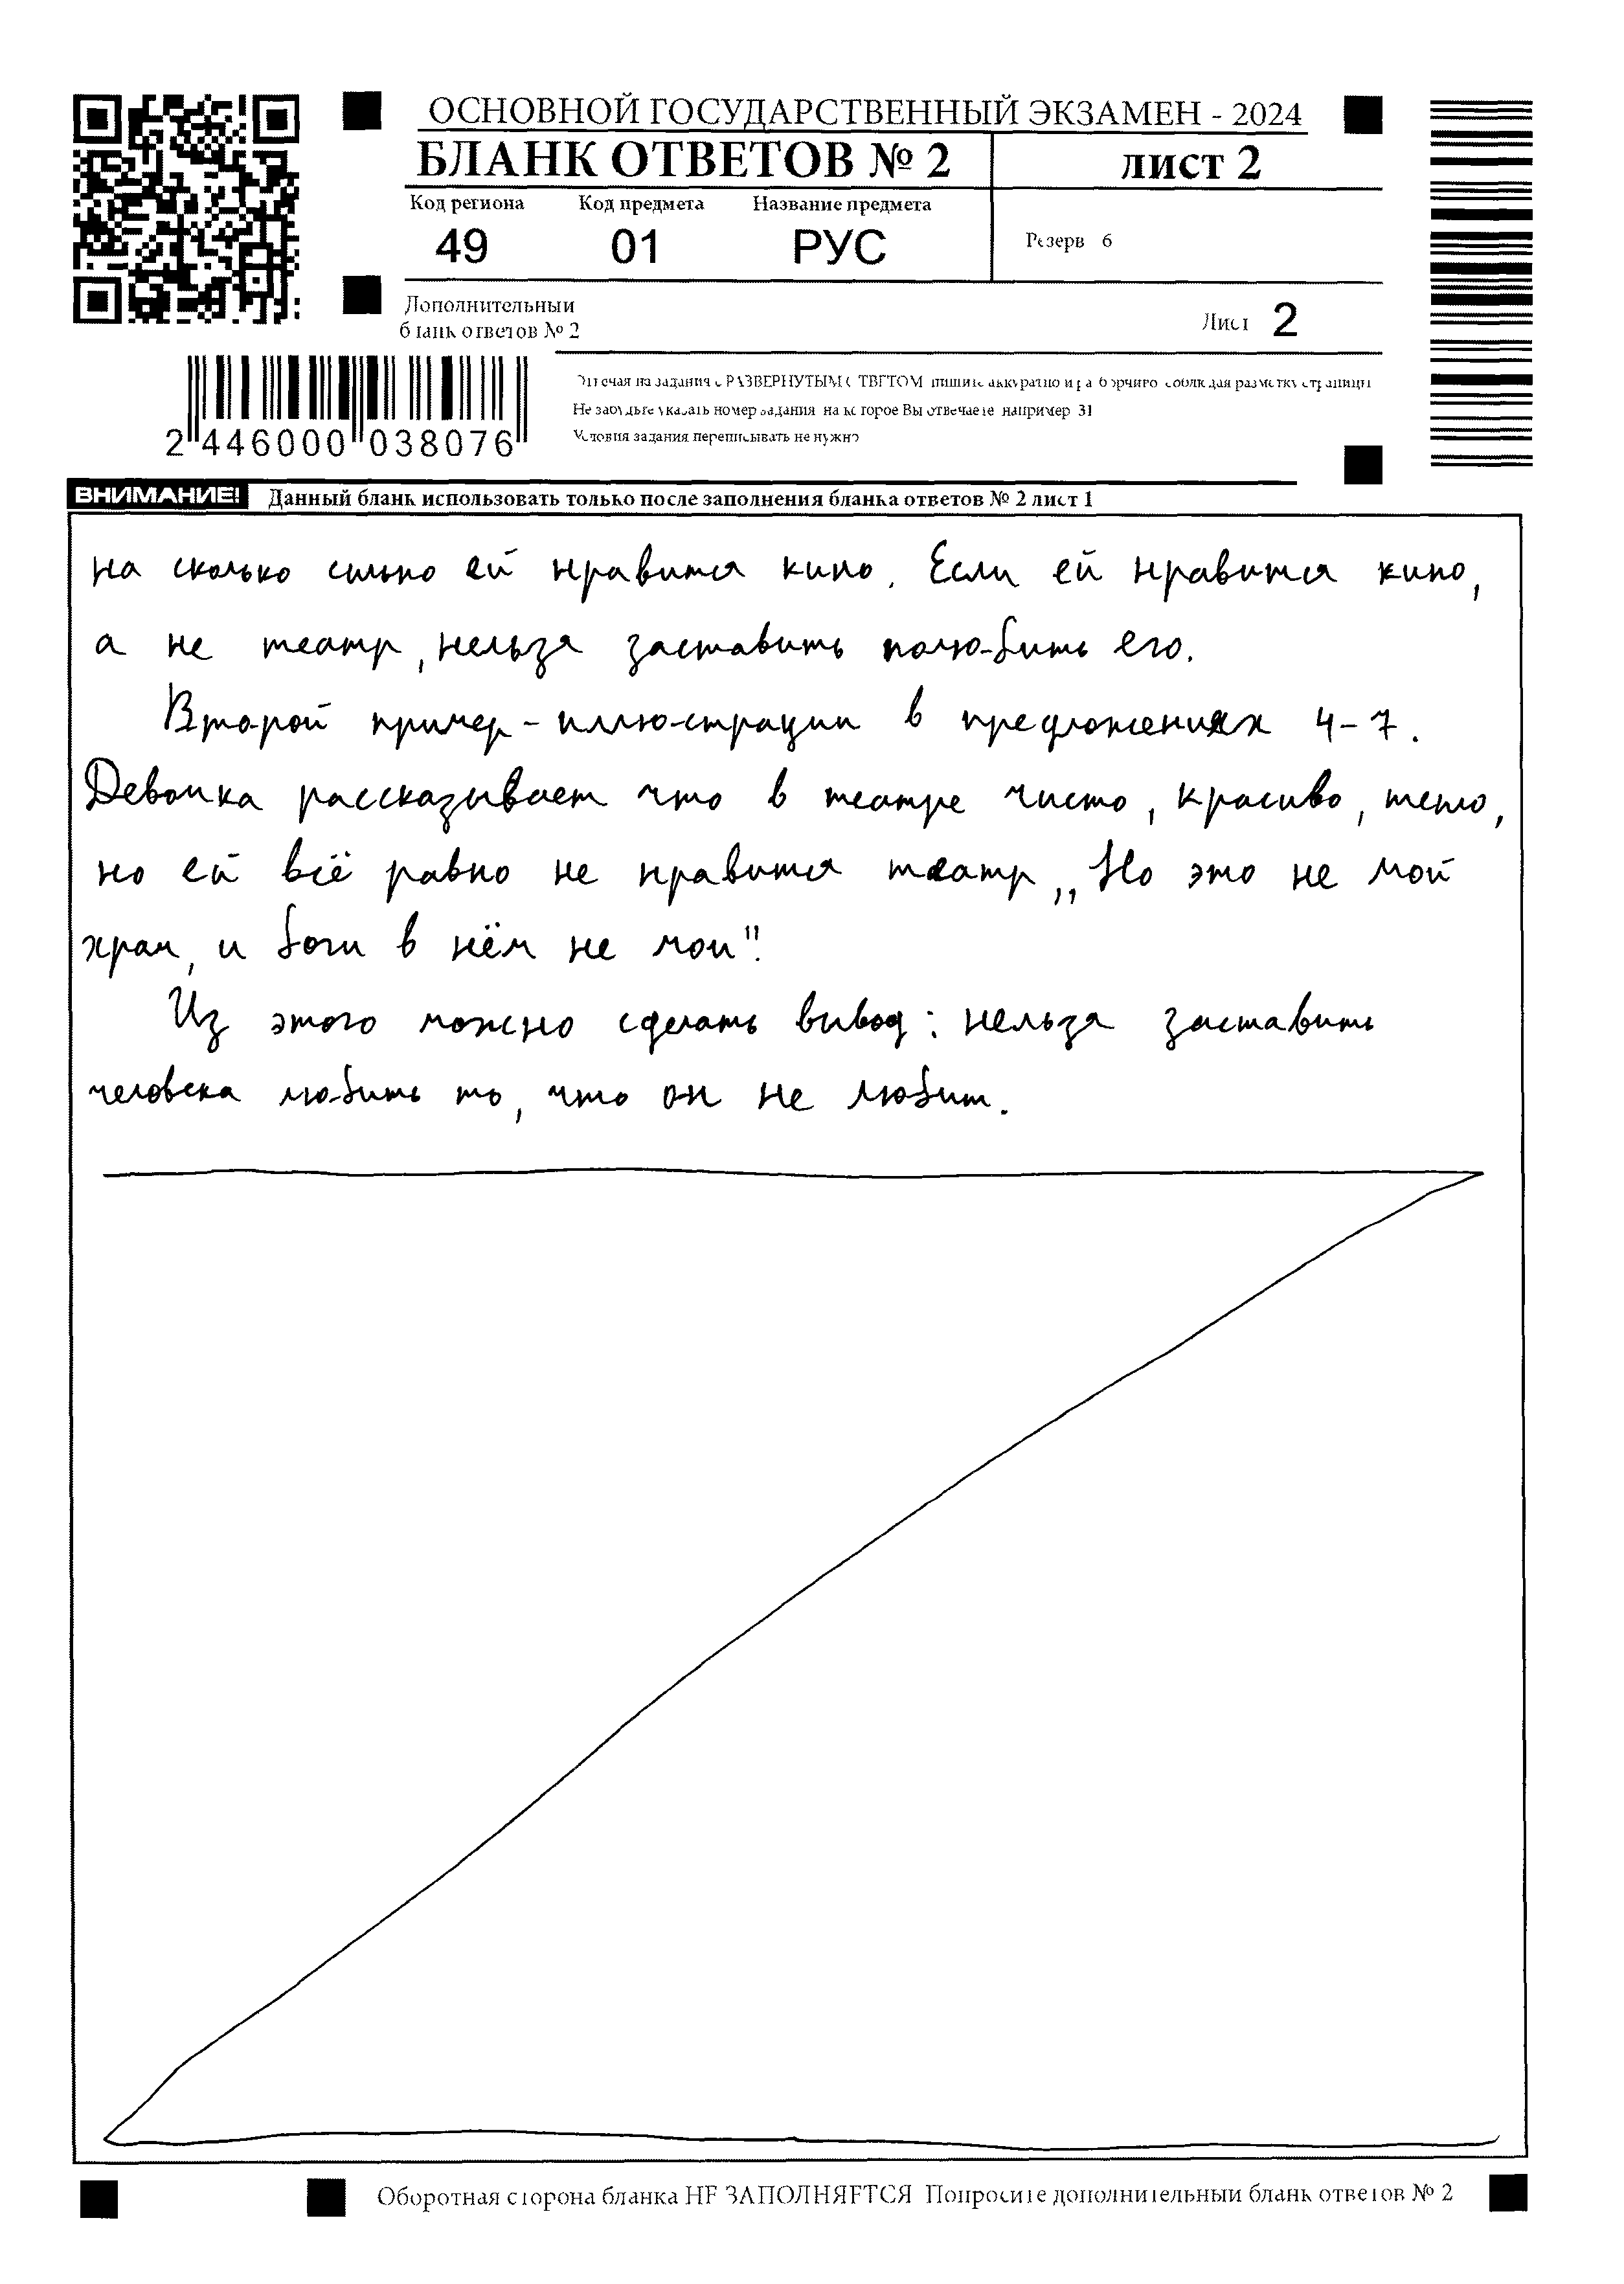 ОСНОВНОЙ ГОСУДАРСТВЕННЫЙ ЭКЗАМЕН - 2024
БЛАНК ОТВЕТОВ № 2 лист 2
Код региона Код предмета Название предмета
49 01 РУС Резерв 6
Дополнительный
бланк ответов № 2 Лист 2
Отвечая на задания с РАЗВЕРНУТЫМ ОТВЕТОМ пишите аккуратно и разборчиво соблюдая разметку страницы
Не забудьте указать номер задания на которое Вы отвечаете например 31
Условия задания переписывать не нужно
2 446000 038076
ВНИМАНИЕ! Данный бланк использовать только после заполнения бланка ответов № 2 лист 1
на сколько сильно ей нравится кино. Если ей нравится кино,
а не театр, нельзя заставить полюбить его.
Второй пример-иллюстрации в предложениях 4-7.
Девочка рассказывает что в театре чисто, красиво, тепло,
но ей всё равно не нравится театр „Но это не мой
храм, и боги в нём не мои".
Из этого можно сделать вывод: нельзя заставить
человека любить то, что он не любит.
Оборотная сторона бланка НЕ ЗАПОЛНЯЕТСЯ Попросите дополнительный бланк ответов № 2